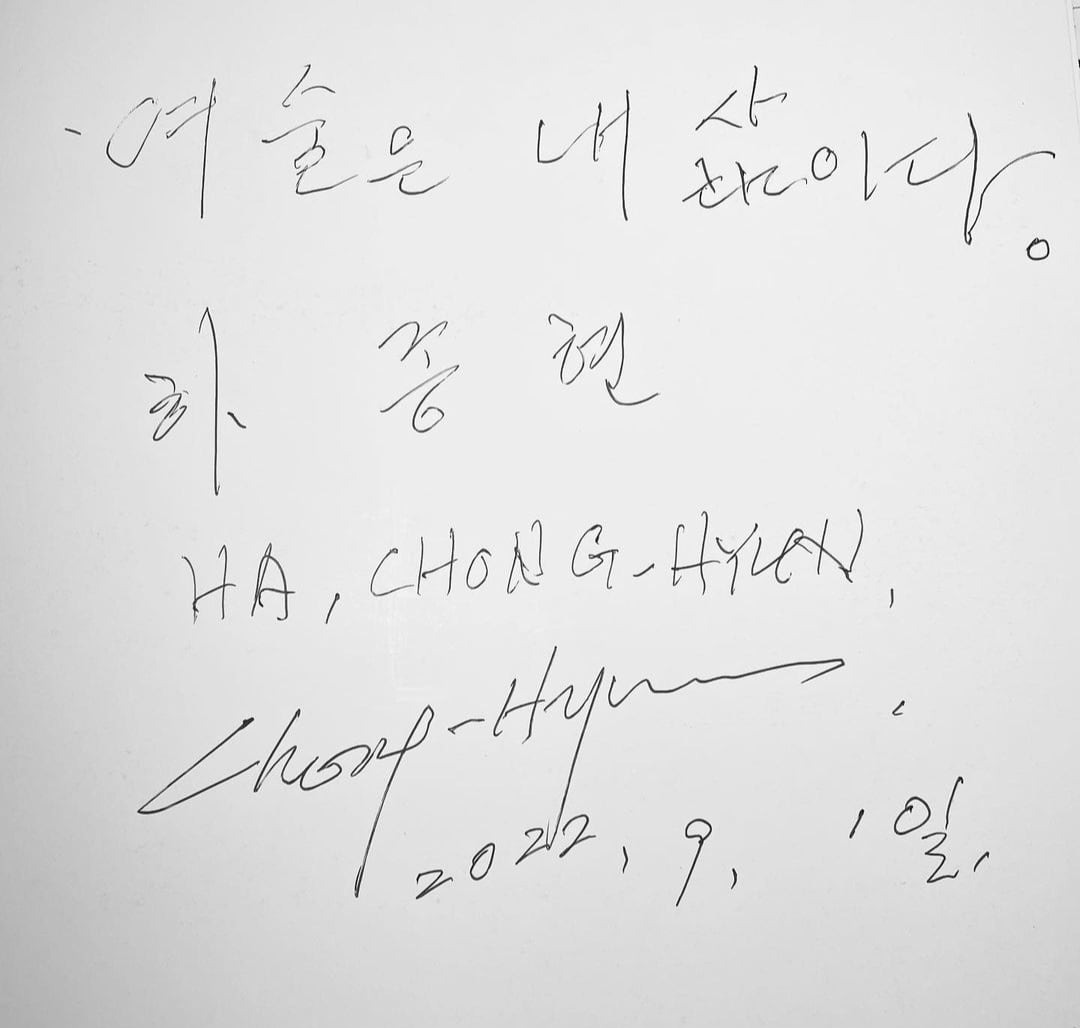 예술은 내 삶이다.
하 종 현
HA, CHONG-HYUN,
Chong-Hyun
2022, 9, 1일,